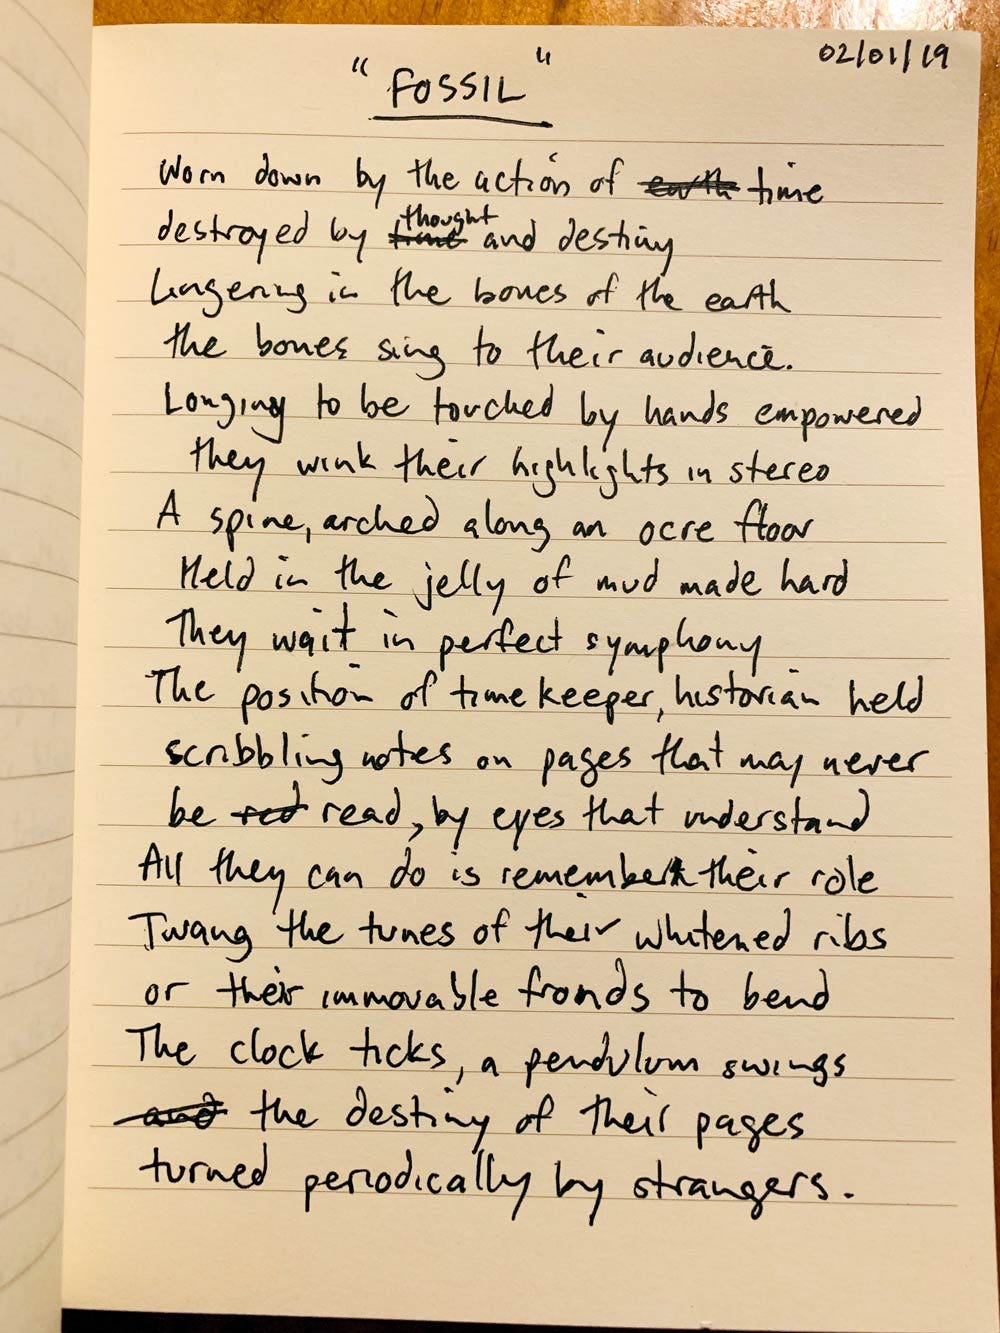 02/01/19
"FOSSIL"
Worn down by the action of earth time
destroyed by time thought and destiny
Lingering in the bones of the earth
the bones sing to their audience.
Longing to be touched by hands empowered
they wink their highlights in stereo
A spine, arched along an ocre floor
Held in the jelly of mud made hard
They wait in perfect symphony
The position of time keeper, historian held
scribbling notes on pages that may never
be red read, by eyes that understand
All they can do is remember their role
Twang the tunes of their whitened ribs
or their immovable fronds to bend
The clock ticks, a pendulum swings
and the destiny of their pages
turned periodically by strangers.